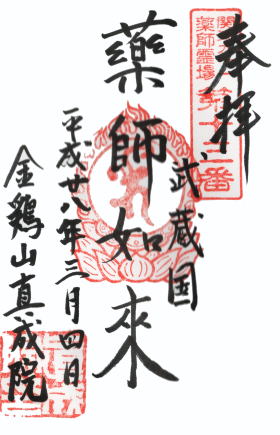 奉拝
武蔵国
藥師如來
平成廿八年三月四日
金鶏山真成院
薬師霊場